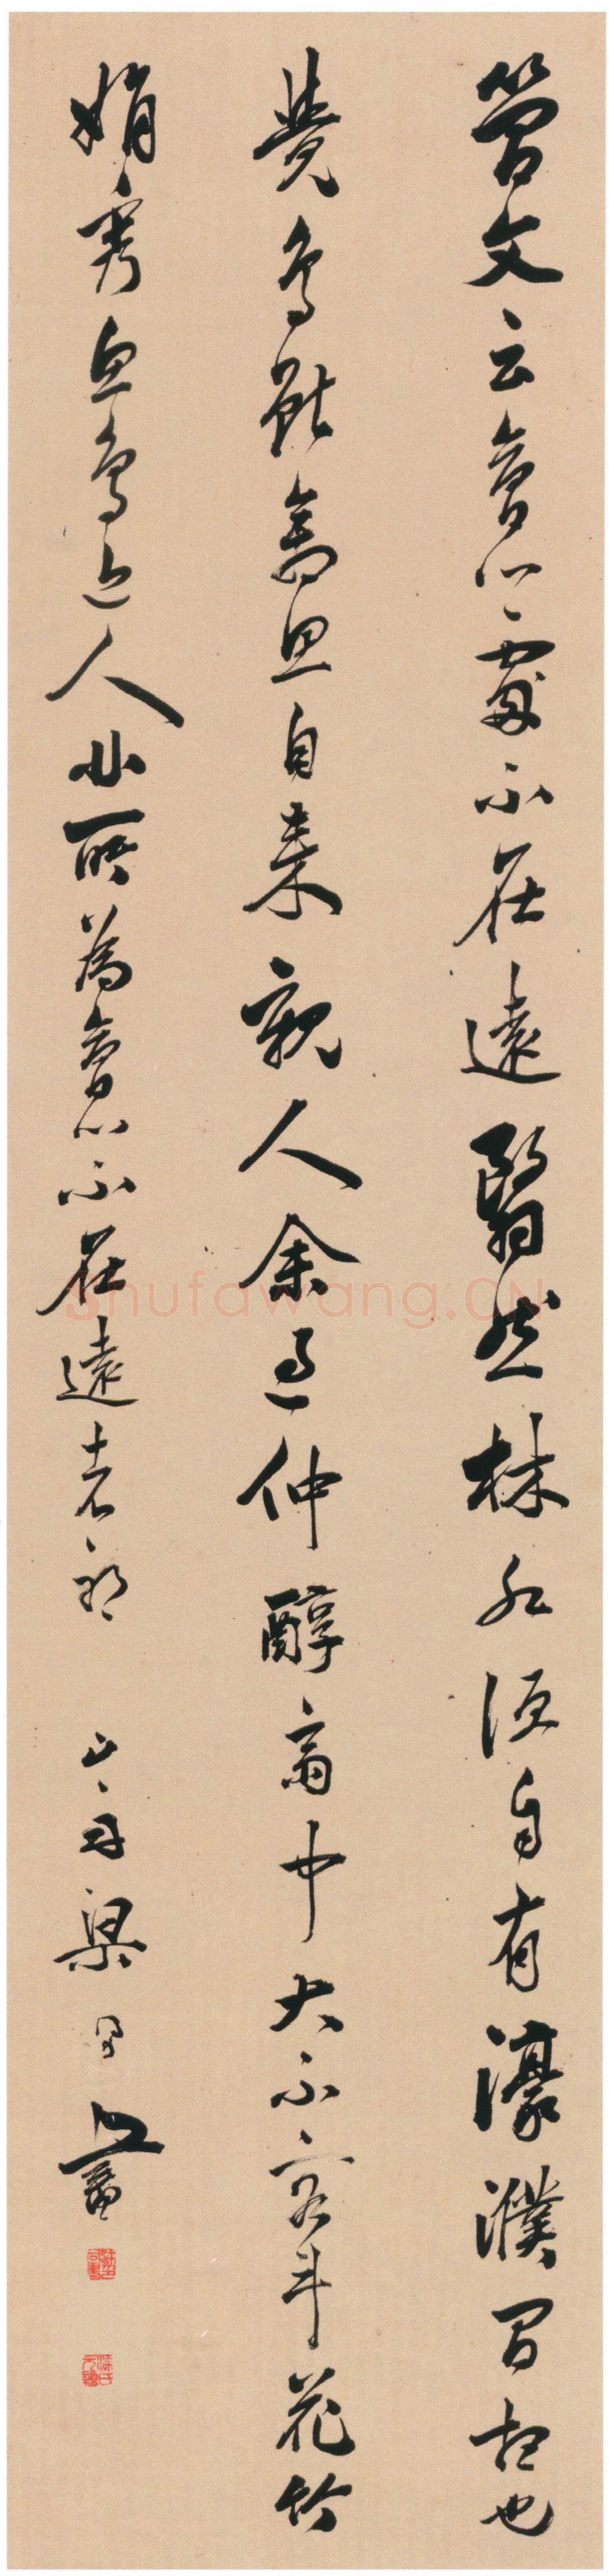 簡文云會心處不在遠翳然林水便自有濠濮間想也
覺鳥獸禽魚自來親人余過仲醇齋中大不容斗花竹
娟秀魚鳥近人此所為會心不在遠者耶 山舟梁同書
shufawang.CN